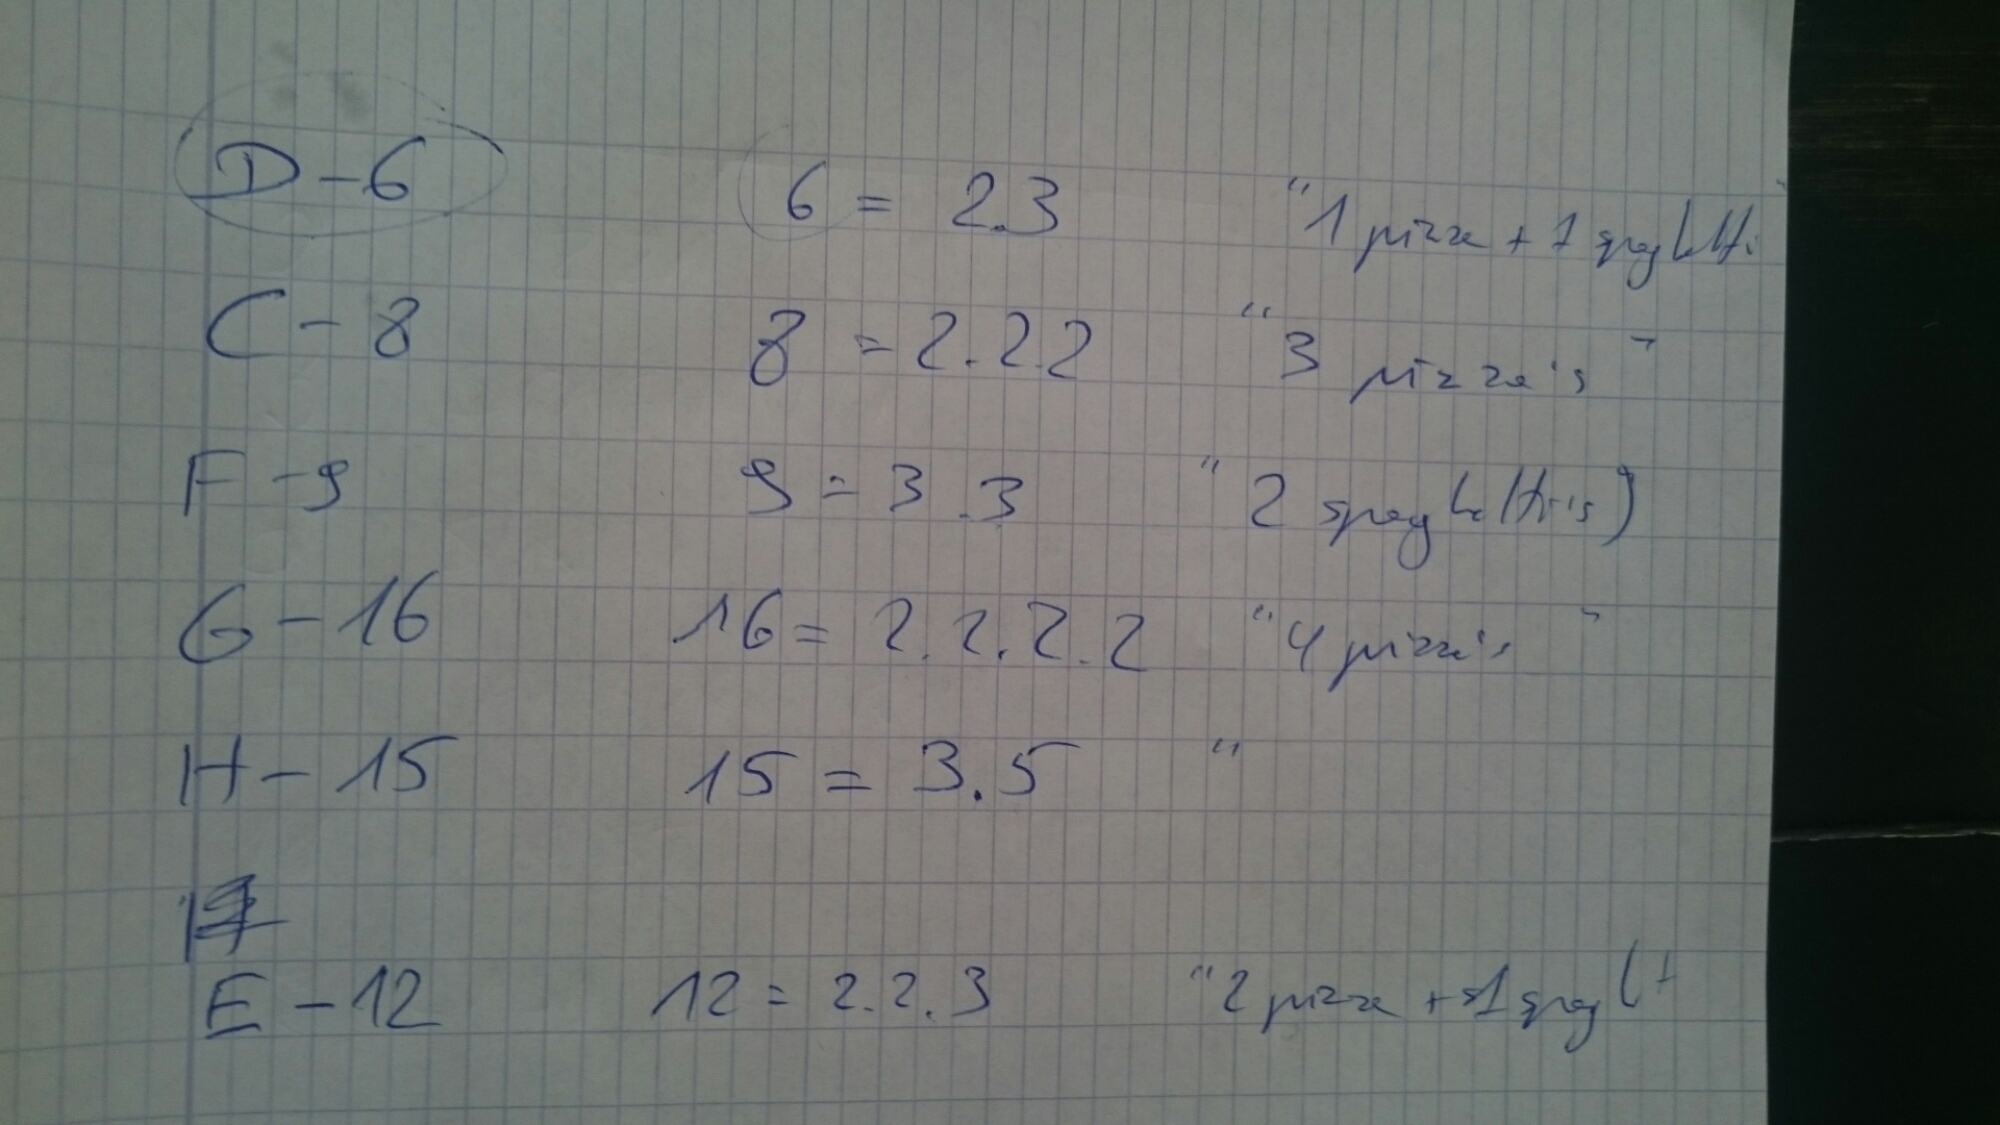 D - 6 6 = 2.3 "1 pizza + 1 spaghetti
C - 8 8 = 2.2.2 "3 pizza's"
F - 9 9 = 3.3 "2 spaghetti's)
G - 16 16 = 2.2.2.2 "4 pizza's"
H - 15 15 = 3.5 "
E - 12 12 = 2.2.3 "2 pizza + 1 spag